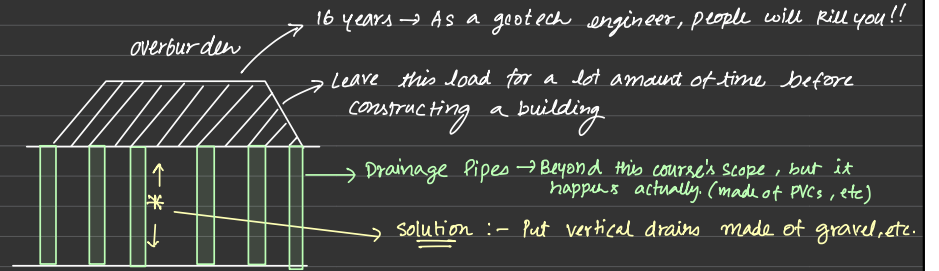 16 years → As a geotech engineer, people will kill you!!
overburden
Leave this load for a lot amount of time before
constructing a building
Drainage Pipes → Beyond this course's scope, but it
happens actually. (made of PVCs, etc)
Solution :- Put vertical drains made of gravel, etc.